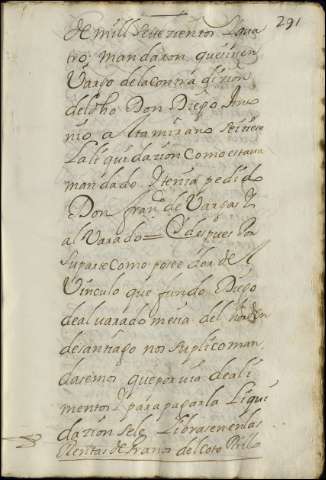 291
de mill Setezientos y qua
tro, mandaron que sin em
Vargo de la contradizion
del dho Don Diego Anto
nio Altamirano se hiziese
La liquidazion Como estava
mandado y tenia pedido
Don Fran.co de Vargas y
alvarado = Y despues La
su parte Como posedor del
Vinculo que fundo Diego
de alvarado mesia del horden
de santiago nos suplico man
dasemos que por via de ali
mentos y para pagar la Liqui
dazion se le Librasen en las
Rentas de Granos del Coto